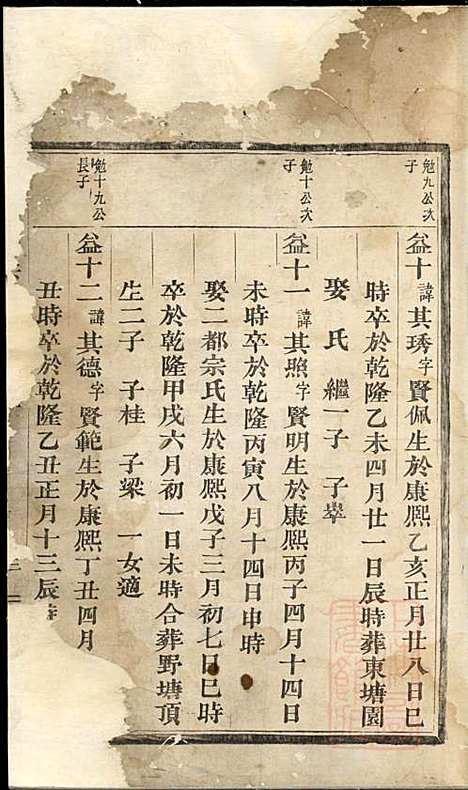 勉九公次
子
益十 諱其琇字賢佩生於康熙乙亥正月廿八日巳
時卒於乾隆乙未四月廿一日辰時葬東塘園
娶氏 繼一子 子
勉十公次
子
益十一 諱其照字賢明生於康熙丙子四月十四日
未時卒於乾隆丙寅八月十四日申時
娶二都宗氏生於康熙戊子三月初七日巳時
卒於乾隆甲戌六月初一日未時合葬野塘頂
生二子 子桂 子梁 一女適
勉十九公
長子
益十二 諱其德字賢範生於康熙丁丑四月
丑時卒於乾隆乙丑正月十三辰時